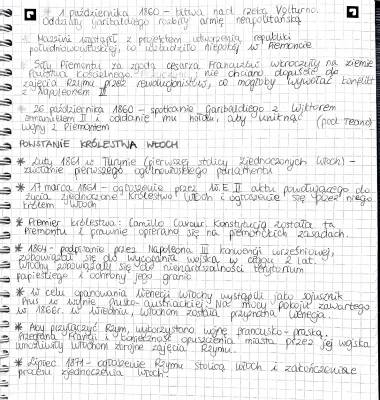 * 1 października 1860 - bitwa nad rzeką Volturno.
Oddziały Garibaldiego rozbiły armię neapolitańską
* Mazzini wystąpił z projektem utworzenia republiki
południowowłoskiej, co wzbudziło niepokój w Piemoncie
* Siły Piemontu za zgodą cesarza Francuzów wkroczyły na ziemie
Państwa Kościelnego. nie chciano dopuścić do
zajęcia Rzymu przez rewolucjonistów, co mogłoby wywołać konflikt
z Napoleonem III
* 26 października 1860 - spotkanie Garibaldiego z Wiktorem
Emanuelem II i oddanie mu hołdu, aby uniknąć (pod Teano)
wojny z Piemontem
POWSTANIE KRÓLESTWA WŁOCH
* Luty 1861 w Turynie (pierwszej stolicy zjednoczonych Włoch) -
zwołanie pierwszego ogólnowłoskiego parlamentu
* 17 marca 1861 - ogłoszenie przez W.E II aktu powołującego do
życia zjednoczone królestwo Włoch i ogłoszenie się przez niego
królem Włoch
* Premier królestwa: Camillo Cavour. Konstytucją została ta
Piemontu i prawnie opierano się na piemonckich zasadach.
* 1864 - podpisanie przez Napoleona III konwencji wrześniowej,
zobowiązał się do wycofania wojska w ciągu 2 lat.
Włochy zobowiązały się do nienaruszalności terytorium
papieskiego i ochrony jego granic
* W celu opanowania Wenecji Włochy wystąpiły jako sojusznik
Prus w wojnie prusko-austriackiej. Na mocy pokoju zawartego
w 1866r. w Wiedniu, Włochom została przyznana Wenecja.
* Aby przyłączyć Rzym, wykorzystano wojnę francusko-pruską.
Przegrana Francji i konieczność opuszczenia miasta przez jej wojska
umożliwiły Włochom zbrojne zajęcia Rzymu.
* Lipiec 1871 - ogłoszenie Rzymu stolicą Włoch i zakończenie
procesu zjednoczenia Włoch.